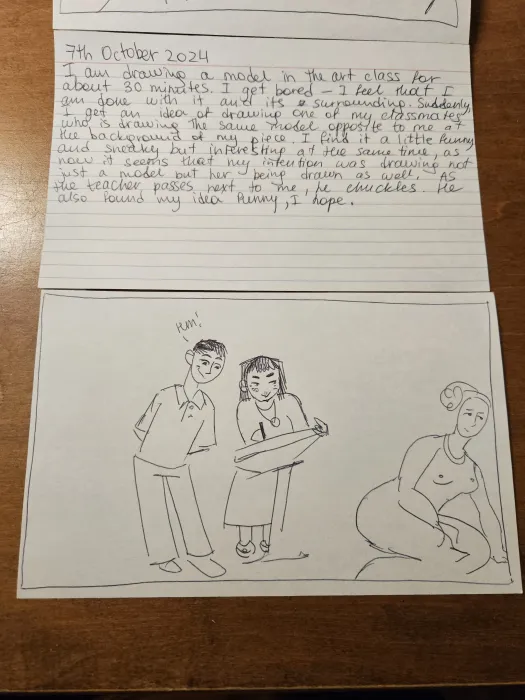 7th October 2024
I am drawing a model in the art class for
about 30 minutes. I get bored – I feel that I
am done with it and its surrounding. Suddenly,
I get an idea of drawing one of my classmates,
who is drawing the same model opposite to me at
the background of my piece. I find it a little funny
and sneaky but interesting at the same time, as
now it seems that my intention was drawing not
just a model but her being drawn as well. As
the teacher passes next to me, he chuckles. He
also found my idea funny, I hope.